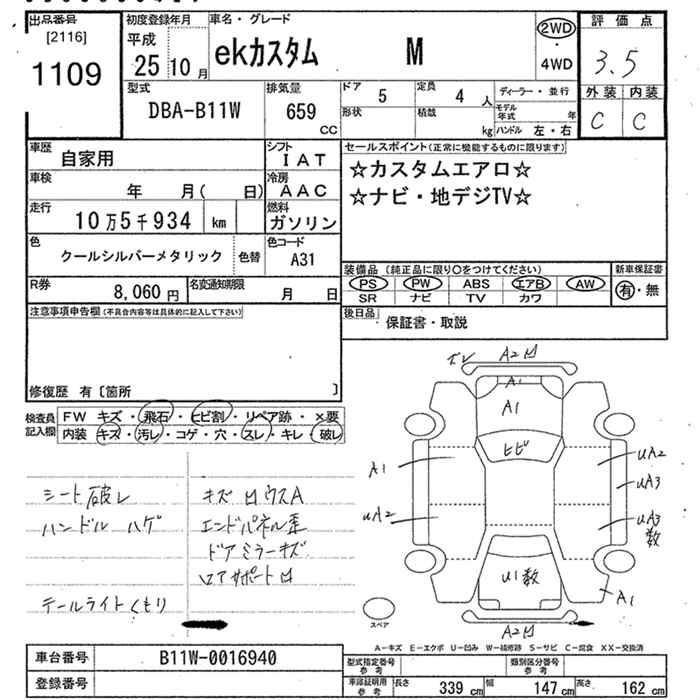 出品番号
[2116]
1109
初度登録年月
平成
25 10 月
車名・グレード
ekカスタム M
2WD
・
4WD
評価点
3.5
外装 内装
C C
型式
DBA-B11W
排気量
659
CC
ドア 5
定員 4 人
形状
積載 kg
ディーラー・並行
モデル年式 年
ハンドル 左・右
車歴
自家用
シフト
IAT
車検
年 月( 日)
冷房
AAC
走行
10万5千934 km
燃料
ガソリン
色
クールシルバーメタリック 色替
色コード
A31
R券
8,060 円
名変通知期限
月 日
セールスポイント(正常に機能するものに限ります)
☆カスタムエアロ☆
☆ナビ・地デジTV☆
装備品(純正品に限り〇をつけてください)
PS PW ABS エアB AW
SR ナビ TV カワ
新車保証書
有・無
後日品
保証書・取説
注意事項申告欄(不具合内容等は具体的に記入して下さい)
修復歴 有〔箇所 〕
検査員
記入欄
FW キズ・飛石・ヒビ割・リペア跡・×要
内装 キズ・汚レ・コゲ・穴・スレ・キレ・破レ
シート破レ
ハンドル ハゲ
テールライトくもり
キズ凹ウスA
エンドパネル歪
ドアミラーキズ
ロアサポート凹
ズレ A2凹
A1
A1
ヒビ
A1
UA2
UA2
UA3
UA3
数
U1数
A1
A2凹
スペア
A-キズ E-エクボ U-凹み W-補修跡 S-サビ C-腐食 XX-交換済
車台番号
B11W-0016940
登録番号
型式指定番号
参考
類別区分番号
参考
車庫証明用
参考
長さ 339 cm
幅 147 cm
高さ 162 cm